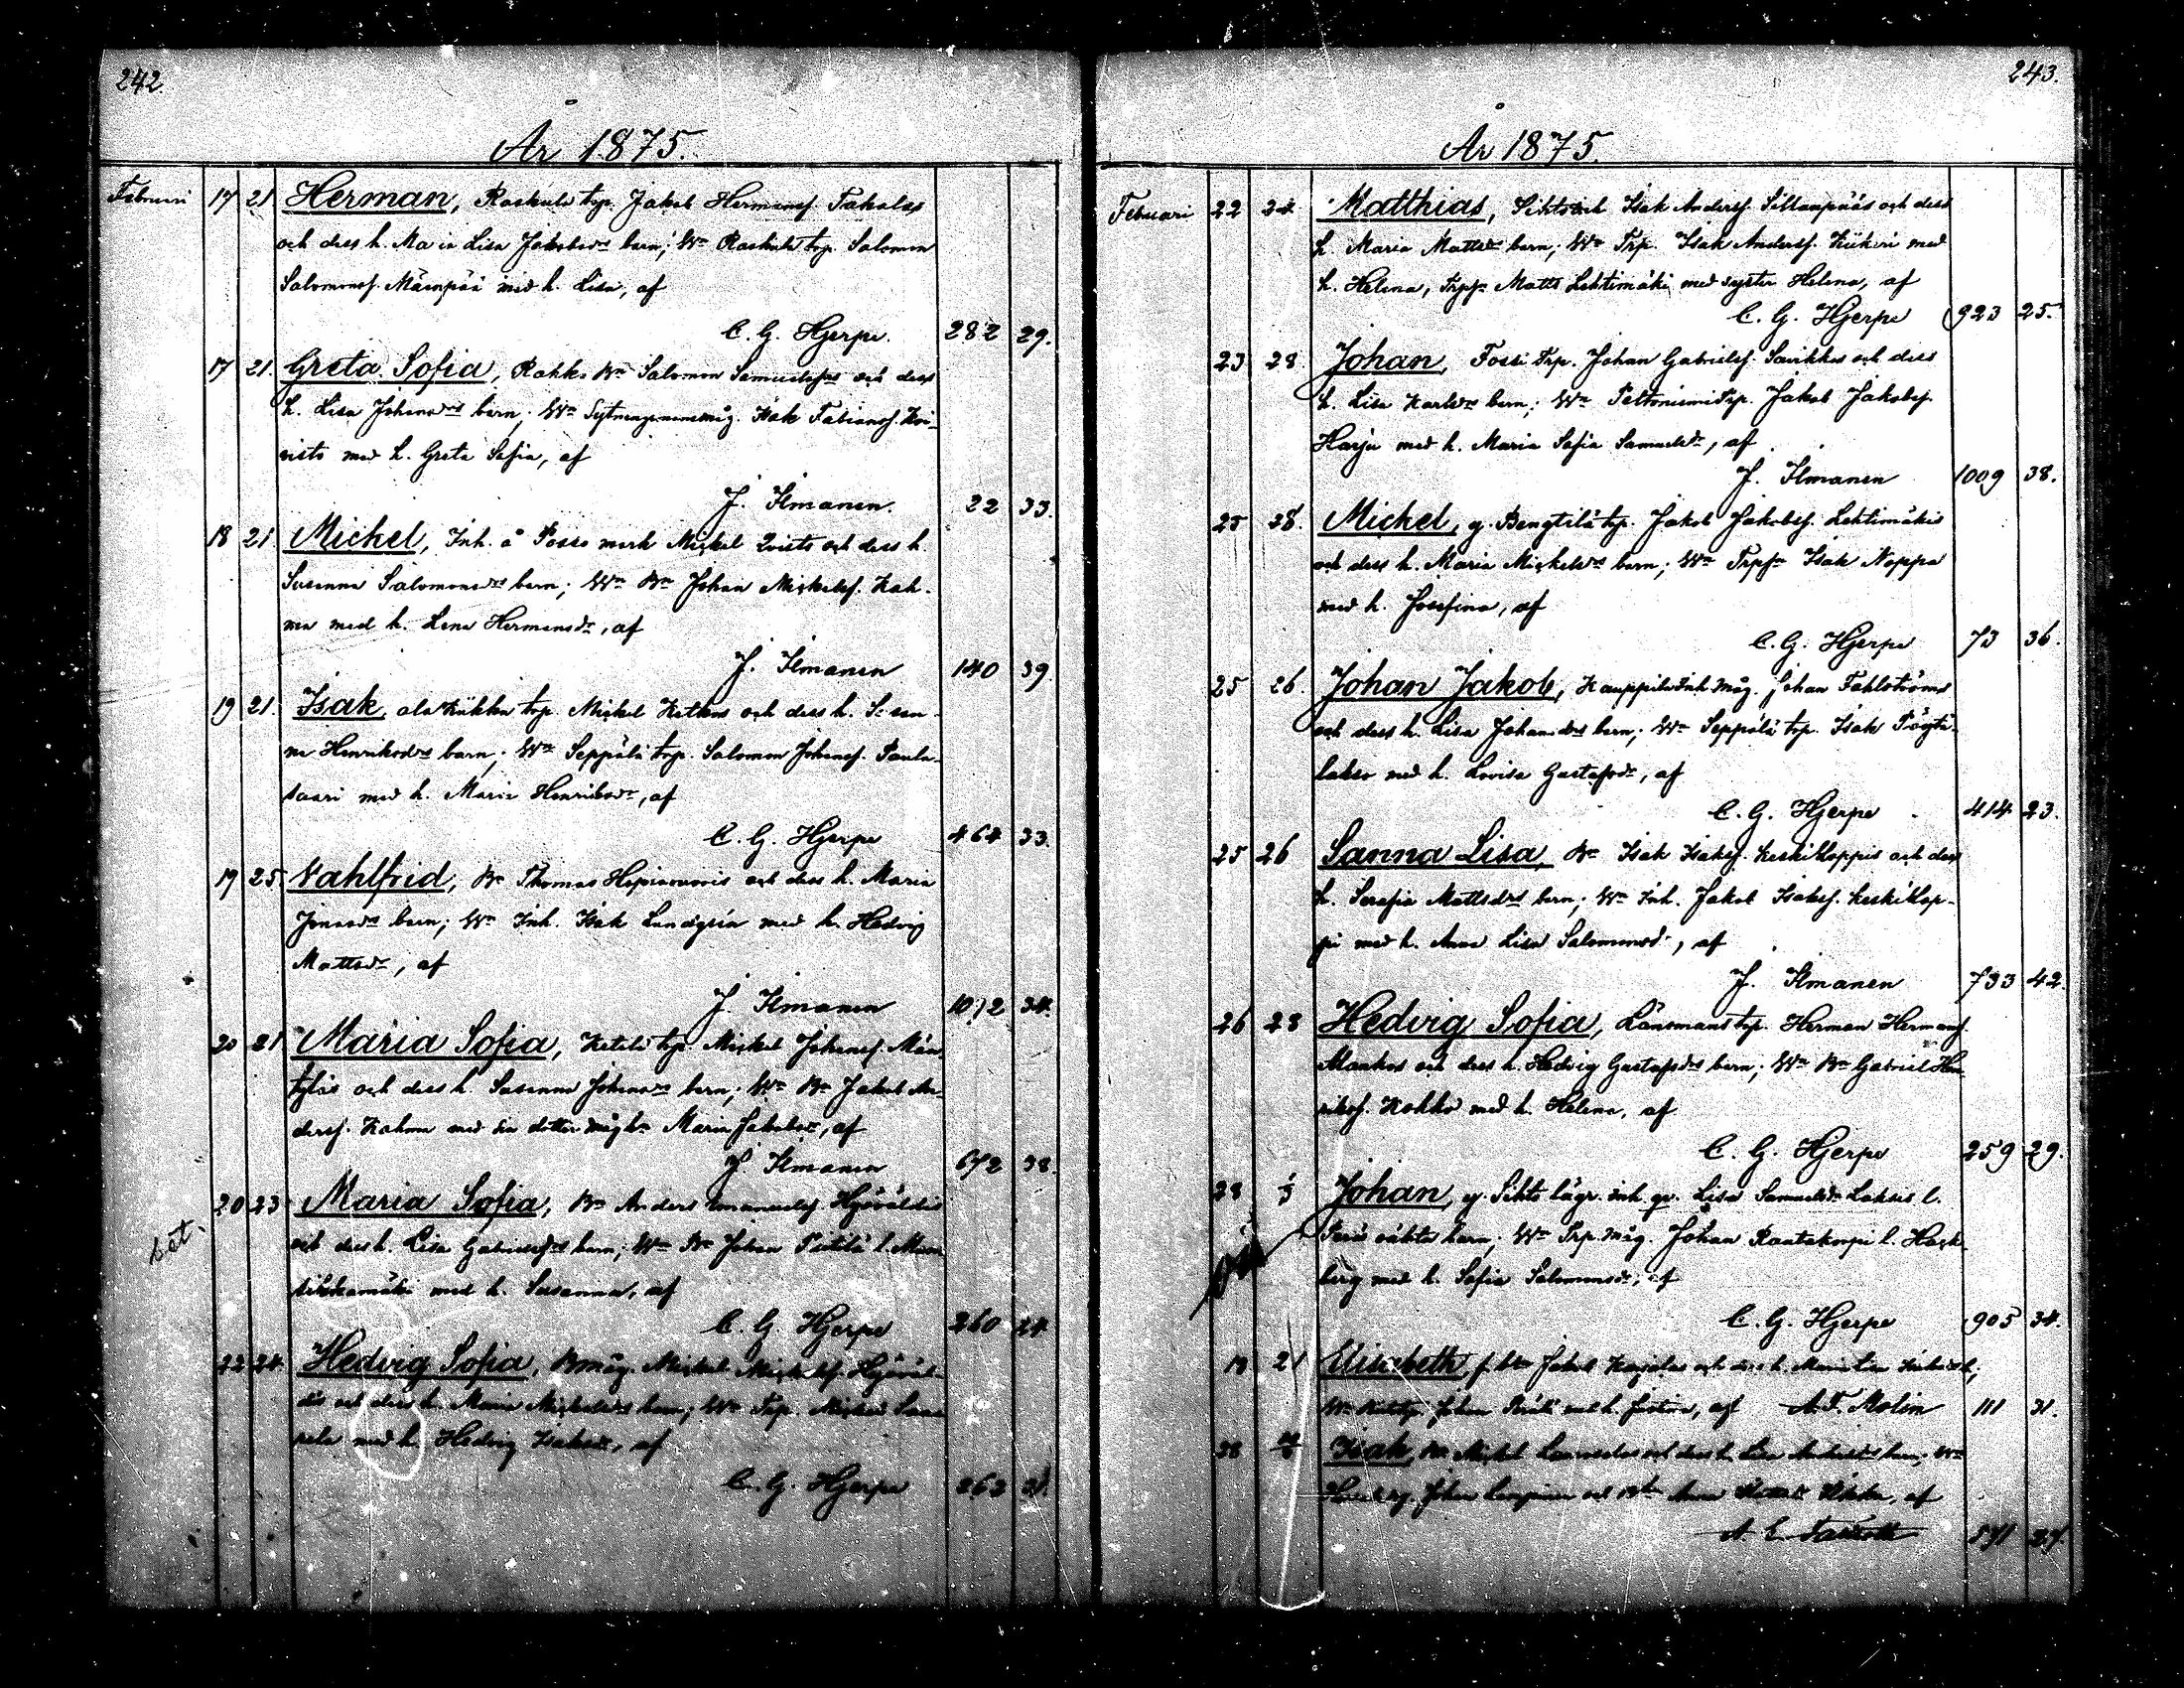 242.
År 1875.
Februari 17 21 Herman, Raskula trp. Jakob Hermansf. Takalas
och dess h. Maria Lisa Jakobsdrs barn; Wn Raskula trp. Salomon
Salomonsf. Mäenpää med h. Lisa, af
C. G. Hjerpe. 282 29.
17 21. Greta Sofia, Rahko Bn Salomon Samuelsfns och dess
h. Lisa Johansdrs barn; Wn Sytningsmansmåg. Isak Fabiansf. Koi-
visto med h. Greta Sofia, af
J. Ilmanen. 22 33.
18 21 Michel, Inh. å Posso mark Michel Qvists och dess h.
Susanna Salomonsdrs barn; Wn Bn Johan Michelsf. Kah-
ma med h. Lena Hermansdr, af
J. Ilmanen 140 39.
19 21. Isak, trp. Michel och dess h. Susan-
na Henriksdrs barn; Wn Seppälä trp. Salomon Johansf. Paula-
saari med h. Maria Henriksdr, af
C. G. Hjerpe 464 33.
19 25 Vahlfrid, Bn Thomas och dess h. Maria
Jonasdrs barn; Wn Inh. Isak Lundgrén med h. Hedvig
Mattsdr, af
J. Ilmanen 1072 34.
20 21 Maria Sofia, trp. Michel Johansf. Män-
tyläs och dess h. Susanna Johansdrs barn; Wn Bn Jakob An-
dersf. Kahma med sin dotter Maria Jakobsdr, af
J. Ilmanen 672 38.
bet.
20 23 Maria Sofia, Bn Anders Emanuelsf. Hyöväldis
och dess h. Lisa Gabrielsdrs barn; Wn Bn Johan l.
med h. Susanna, af
C. G. Hjerpe 260 24.
22 24. Hedvig Sofia, Bmåg. Michel Michelsf. Hyöväl-
dis och dess h. Maria Michelsdrs barn; Wn Trp. Michel
med h. Hedvig Isaksdr, af
C. G. Hjerpe 263
243.
År 1875.
Februari 22 24. Matthias, Isak Andersf. Sillanpääs och dess
h. Maria Mattsdrs barn; Wn Trp. Isak Andersf. Kiikeri med
h. Helena, Trpsn Matts Lehtimäki med syster Helena, af
C. G. Hjerpe 923 25.
23 28. Johan, Fossi Trp. Johan Gabrielsf. Savikkos och dess
h. Lisa Karlsdrs barn; Wn Peltoniemi Trp. Jakob Jakobsf.
Harju med h. Maria Sofia Samuelsdr, af
J. Ilmanen 1009 38.
25 28. Michel, y. Bengtilä trp. Jakob Jakobsf. Lehtimäkis
och dess h. Maria Michelsdrs barn; Wn Trpsn Isak Noppa
med h. Josefina, af
C. G. Hjerpe 73 36.
25 26. Johan Jakob, Kauppila Inh. måg. Johan Fahlströms
och dess h. Lisa Johansdrs barn; Wn Seppälä trp. Isak Pöytä-
lakso med h. Lovisa Gustafsdr, af
C. G. Hjerpe 414 23.
25 26 Sanna Lisa, Bn Isak Isaksf. Keskikloppis och dess
h. Serafia Mattsdrs barn; Wn Inh. Jakob Isaksf. Keskiklop-
pi med h. Anna Lisa Salomonsdr, af
J. Ilmanen 733 42.
26 28 Hedvig Sofia, Länsmans trp. Herman Hermansf.
Mankos och dess h. Hedvig Gustafsdrs barn; Wn Bn Gabriel Hen-
riksf. Kokko med h. Helena, af
C. G. Hjerpe 259 29.
28 1/3 Johan, y. Sikto lägr. inh. qv. Lisa Samuelsdr Laksis l.
oäkta barn; Wn Trp. måg. Johan Rautakorpi l. Hack-
berg med h. Sofia Salomonsdr, af
C. G. Hjerpe 905 34.
19 21 Elisabeth, Jakob och dess h. Maria Lisa
Wn Johan med h. af A. F. Molin 111 31.
28 Isak, Bn Michel och dess h. Lisa barn; Wn
Johan och Anna af
A. E. 571 27.